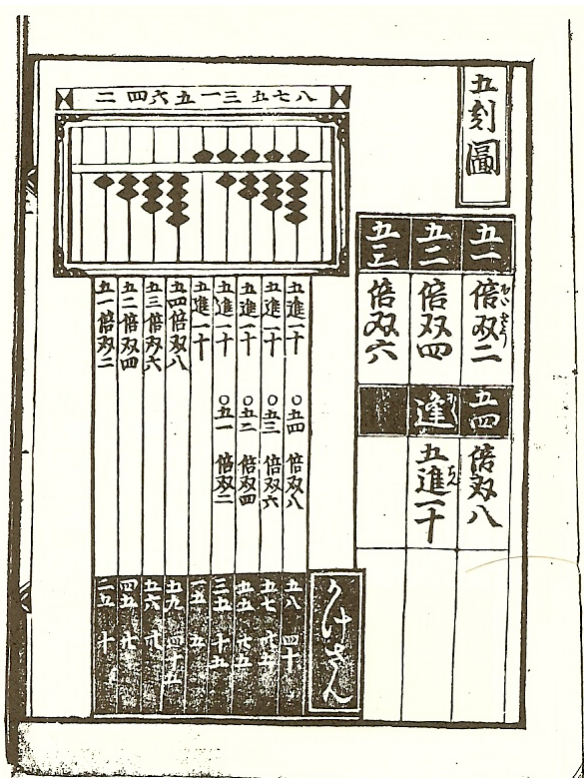 五刻圖
五一 倍双二
五二 倍双四
五三 倍双六
五四 倍双八
逢 五進一十
二四六五一三五七八
五進一十 〇五四 倍双八
五進一十 〇五三 倍双六
五進一十 〇五二 倍双四
五進一十 〇五一 倍双二
五進一十
五四倍双八
五三倍双六
五二倍双四
五一倍双二
かけさん
五八 四十
五七 卅五
五五 廿五
三五 十五
一五 五
五九 四十五
五六 卅
四五 廿
二五 十